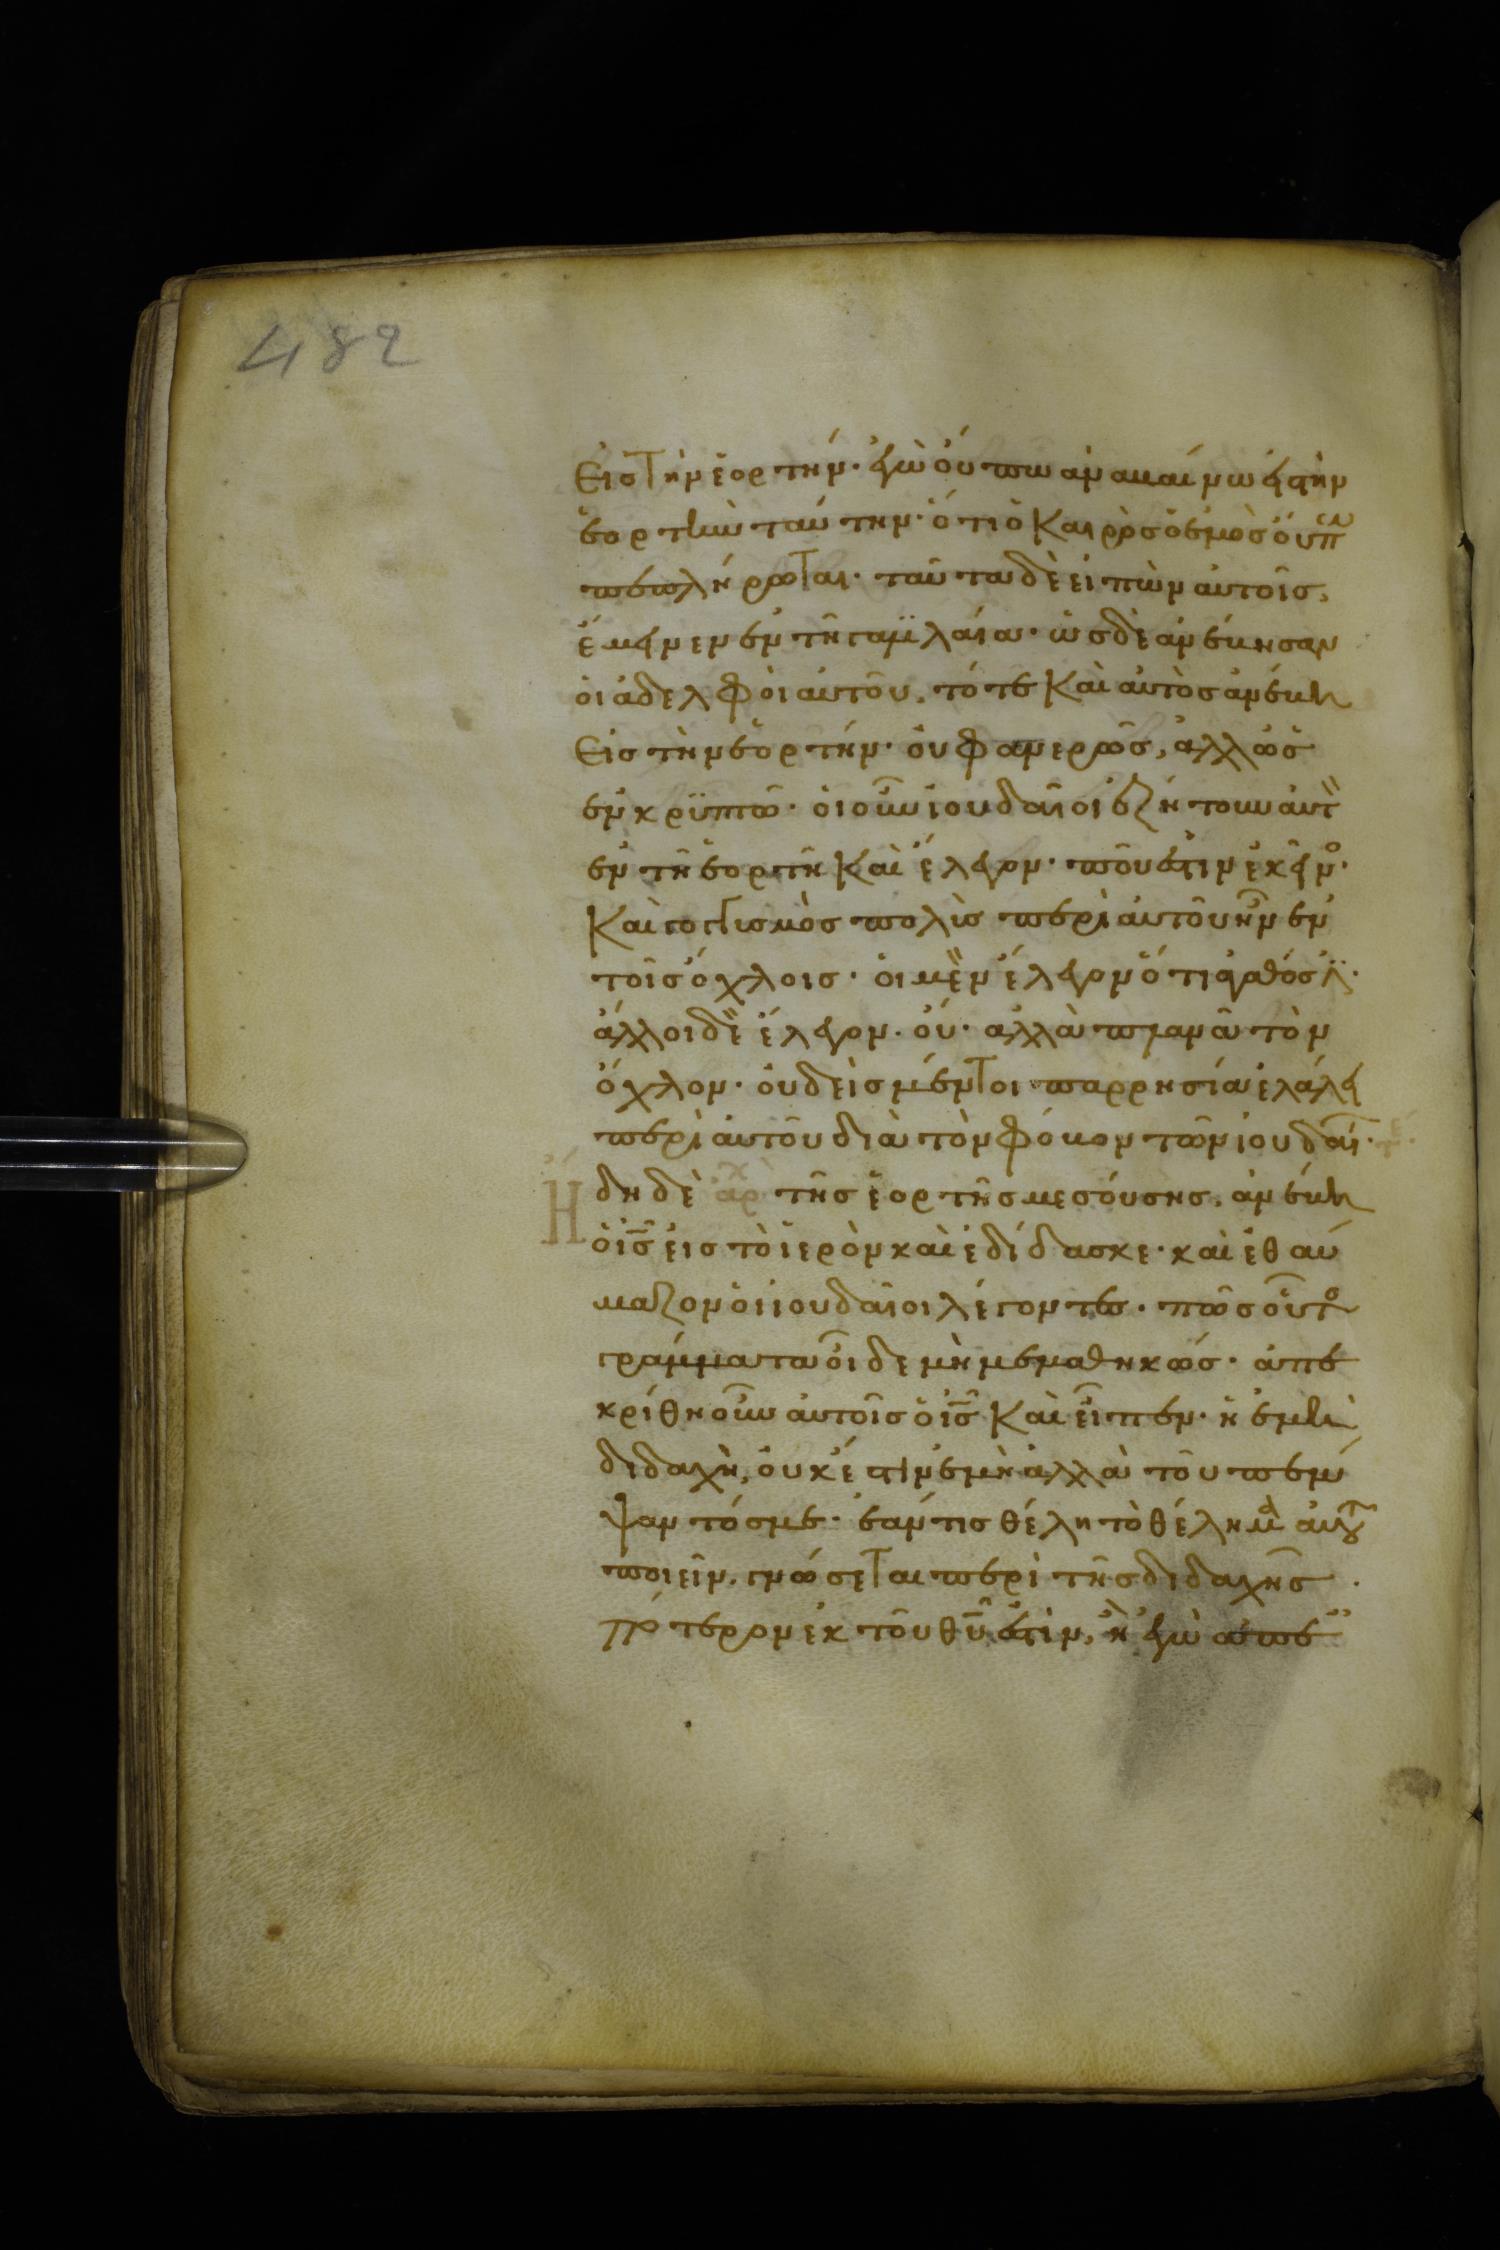 482
εἰς τὴν ἑορτήν· ἐγὼ οὔπω ἀναβαίνω εἰς τὴν
ἑορτὴν ταύτην· ὅτι ὁ καιρὸς ὁ ἐμὸς οὔπω
πεπλήρωται· ταῦτα δὲ εἰπὼν αὐτοῖς,
ἔμεινεν ἐν τῆ γαλιλαία· ὡς δὲ ἀνέβησαν
οἱ ἀδελφοὶ αὐτοῦ, τότε καὶ αὐτὸς ἀνέβη
εἰς τὴν ἑορτήν· οὐ φανερῶς, ἀλλ ὡς
ἐν κρϋπτῶ· οἱ οὖν ἰουδαῖοι ἐζήτουν αὐτὸν
ἐν τῆ ἑορτῆ καὶ ἔλεγον· ποῦ ἐστιν ἐκεῖνος·
καὶ γογγισμὸς πολὺς περὶ αὐτοῦ ἦν ἐν
τοῖς ὄχλοις· οἱ μὲν ἔλεγον ὅτι ἀγαθός ἐστιν·
ἄλλοι δὲ ἔλεγον· οὔ· ἀλλὰ πλανᾶ τὸν
ὄχλον· οὐδεὶς μέντοι παρρησία ἐλάλει
περὶ αὐτοῦ διὰ τὸν φόβον τῶν ἰουδαί·
Ἤδη δὲ ἀρχ τῆς ἑορτῆς μεσούσης, ἀνέβη
ὁ ις εἰς τὸ ἱερὸν καὶ ἐδίδασκε· καὶ ἐθαύ
μαζον οἱ ἰουδαῖοι λέγοντες· πῶς οὗτος
γράμματα οἶδε μὴ μεμαθηκώς· ἀπε
κρίθη οὖν αὐτοῖς ὁ ις καὶ εἶπεν· ἡ ἐμὴ
διδαχὴ, οὐκ ἔστιν ἐμὴ ἀλλὰ τοῦ πέμ
ψαντός με· ἐάν τις θέλη τὸ θέλημα αὐτοῦ
ποιεῖν, γνώσεται περὶ τῆς διδαχῆς·
πότερον ἐκ τοῦ θυ ἐστιν, ἢ ἐγὼ ἀπ ἐ